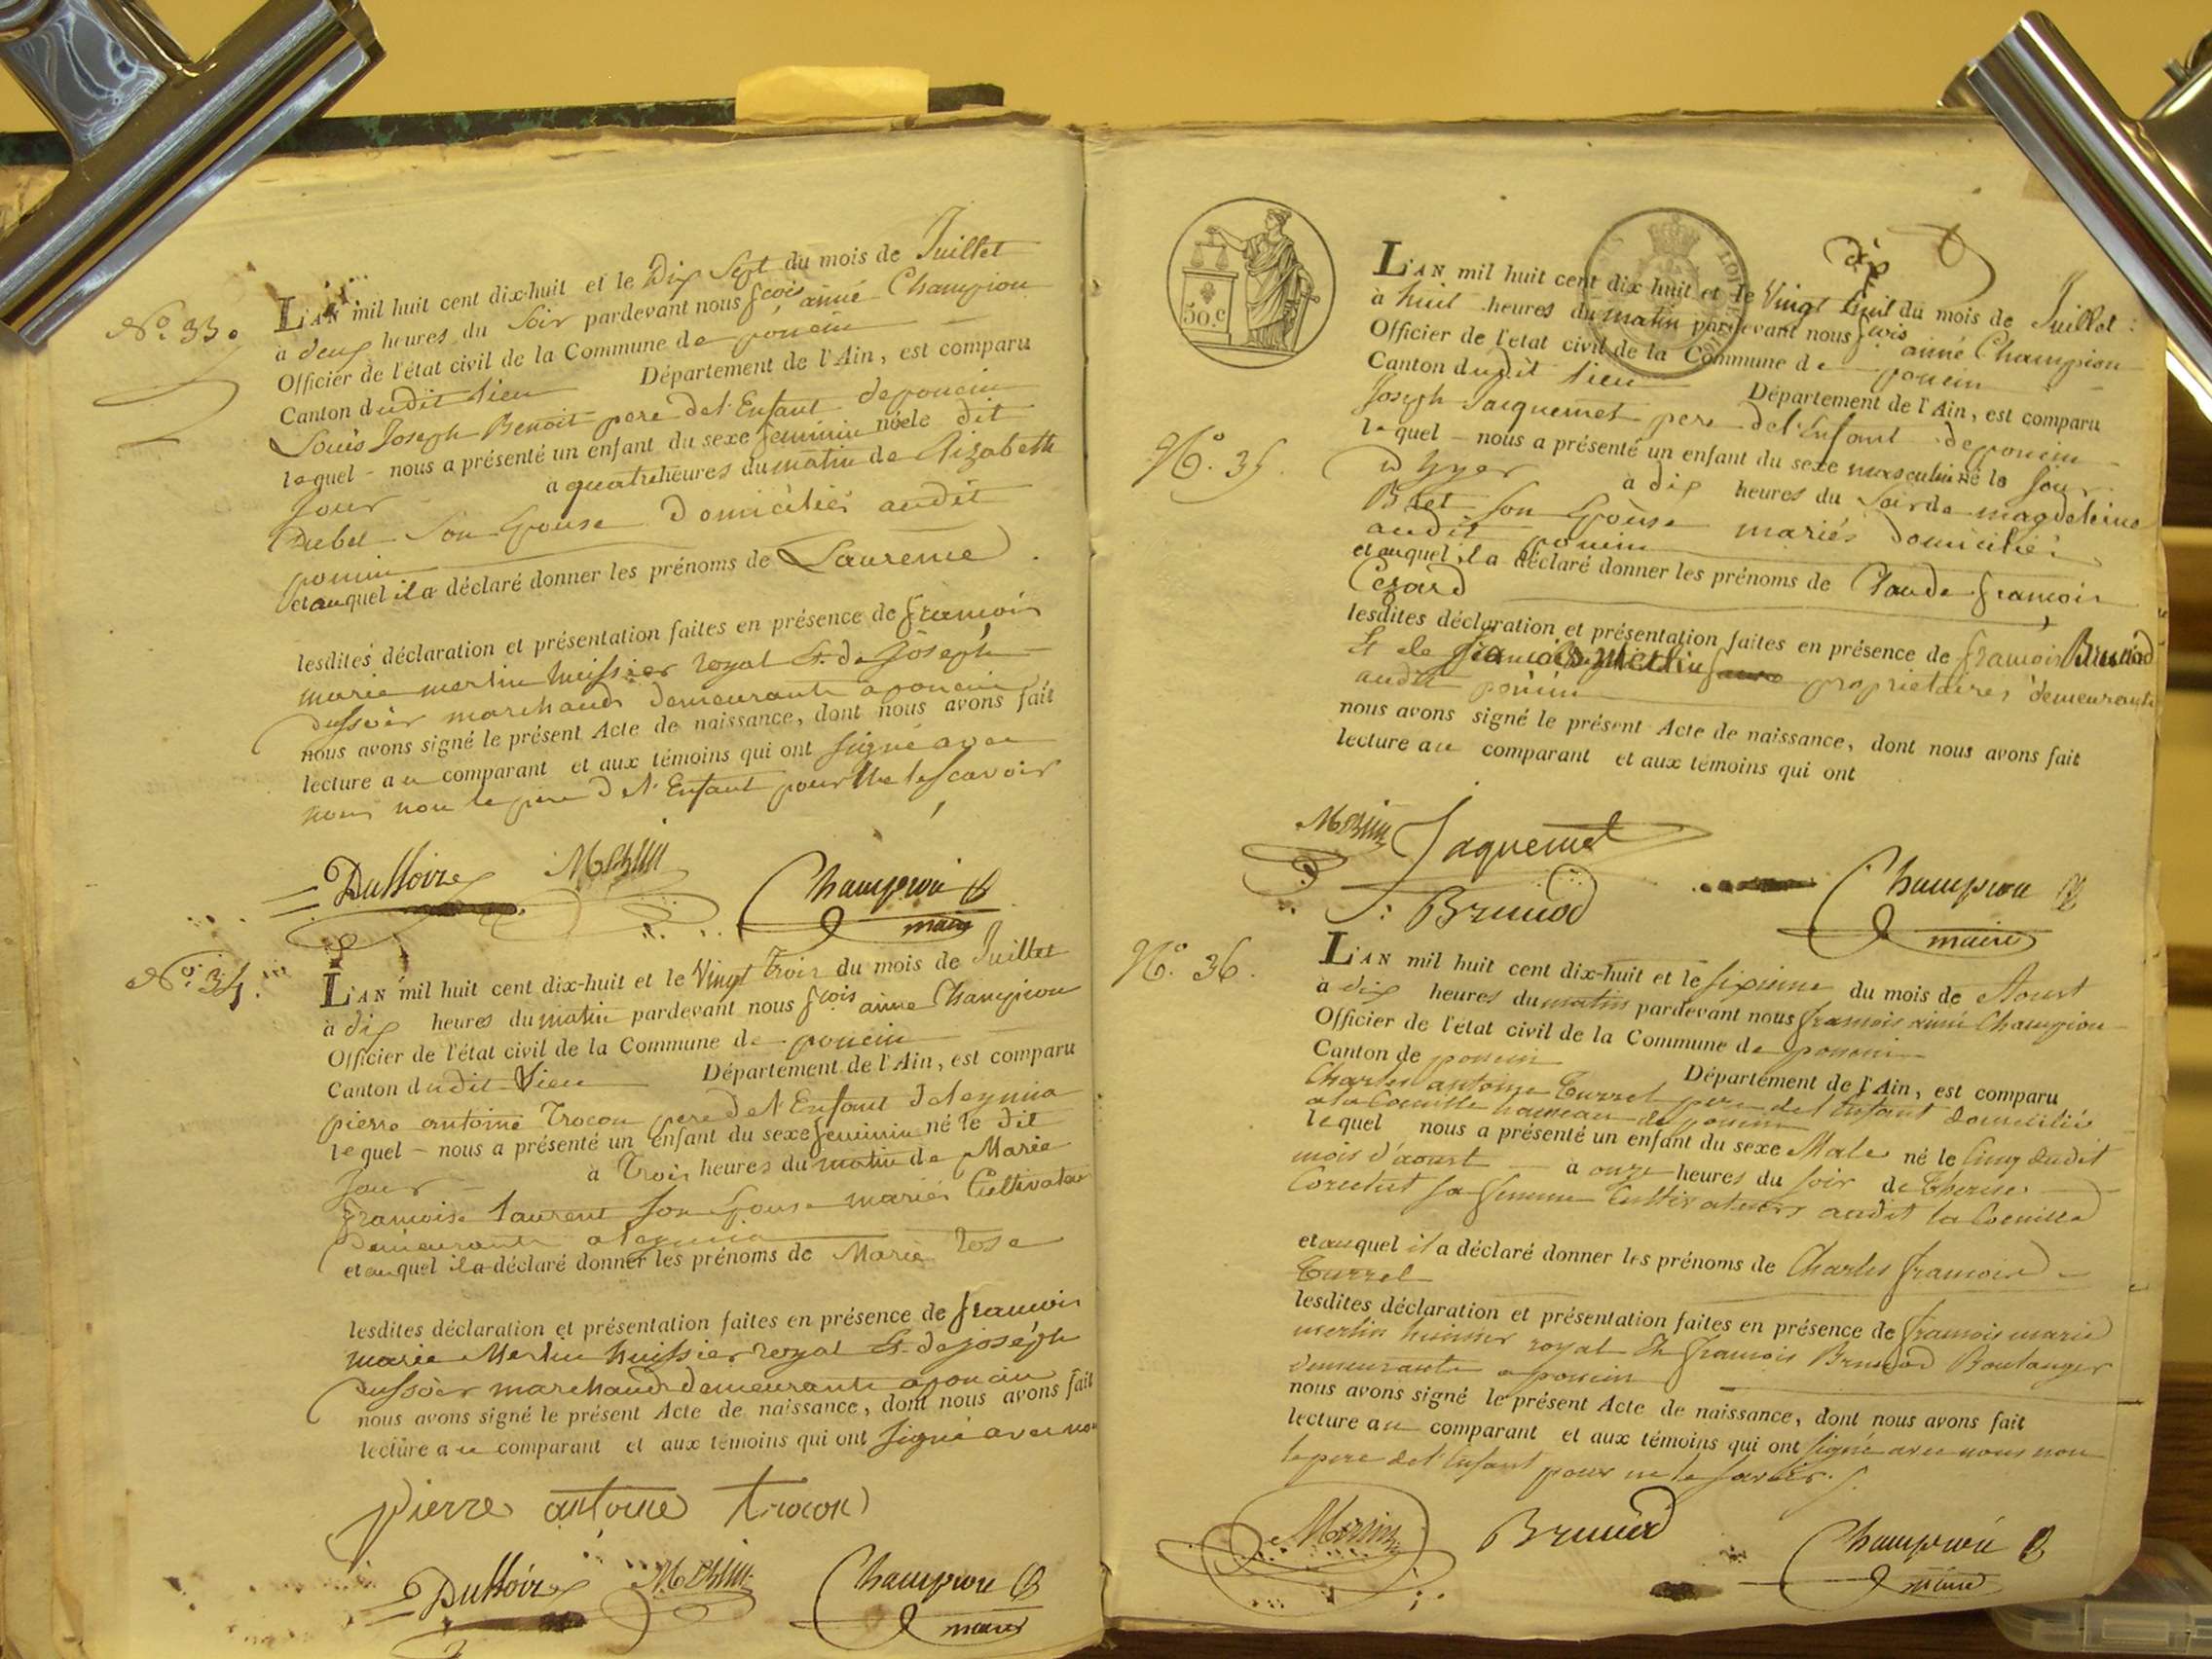 N.º 33.
L'AN mil huit cent dix-huit et le Dix Sept du mois de Juillet
à deux heures du Soir pardevant nous fcois aimé Champion
Officier de l'état civil de la Commune de poncin
Canton dudit lieu Département de l'Ain, est comparu
Louis Joseph Benoit pere de l'Enfant de poncin
lequel nous a présenté un enfant du sexe feminin néele dit
Jour à quatre heures du matin de Elizabeth
Dubel Son Epouse Domiciliés audit
poncin
et auquel il a déclaré donner les prénoms de Laurence
lesdites déclaration et présentation faites en présence de françois
marie merlin huissier royal Et de Joseph
Dussoir marchand demeurants a poncin
nous avons signé le présent Acte de naissance, dont nous avons fait
lecture au comparant et aux témoins qui ont signé avec
nous non le pere de l'Enfant pour ne le scavoir
Dussoire Merlin Champion
maire
N.º 34.
L'AN mil huit cent dix-huit et le Vingt trois du mois de Juillet
à dix heures du matin pardevant nous fcois aimé Champion
Officier de l'état civil de la Commune de poncin
Canton dudit Lieu Département de l'Ain, est comparu
pierre antoine Trocon pere de l'Enfant de leymia
lequel nous a présenté un enfant du sexe feminin né le dit
Jour à Trois heures du matin de Marie
françoise laurent Son Epouse mariés Cultivateurs
Demeurants a leymia
et auquel il a déclaré donner les prénoms de Marie Rose
lesdites déclaration et présentation faites en présence de francois
marie Merlin huissier royal Et de joséph
Dussoir marchand demeurants a poncin
nous avons signé le présent Acte de naissance, dont nous avons fait
lecture au comparant et aux témoins qui ont signé avec nous
pierre antoine trocon
Dussoire Merlin Champion
maire
50.c
dix
L'AN mil huit cent dix-huit et le Vingt huit du mois de Juillet
à huit heures du matin pardevant nous fcois aimé Champion
Officier de l'etat civil de la Commune de poncin
Canton dudit lieu Département de l'Ain, est comparu
Joseph Jacquemet pere de l'Enfant de poncin
N.º 35.
lequel nous a présenté un enfant du sexe masculin né le Jour
d'hyer à dix heures du Soir de magdeleine
Son Epouse mariés domiciliés
audit poncin
et auquel il a déclaré donner les prénoms de Claude francois
Cezard
lesdites déclaration et présentation faites en présence de francois Brunod
Et de francois Merlin proprietaires demeurants
audit poncin
nous avons signé le présent Acte de naissance, dont nous avons fait
lecture au comparant et aux témoins qui ont
Merlin Jaquemet
Brunod Champion
maire
N.º 36.
L'AN mil huit cent dix-huit et le sixieme du mois de Aoust
à dix heures du matin pardevant nous francois aimé Champion
Officier de l'état civil de la Commune de poncin
Canton de poncin Département de l'Ain, est comparu
Charles antoine Turrel pere de l'Enfant domicilié
a la Coeuille hameau de poncin
lequel nous a présenté un enfant du sexe Male né le cinq dudit
mois d'aoust à onze heures du soir de Therese
sa femme Cultivateurs audit la Coeuille
et auquel il a déclaré donner les prénoms de Charles francois
Turrel
lesdites déclaration et présentation faites en présence de francois marie
merlin huissier royal Et francois Brunod Boulanger
demeurants a poncin
nous avons signé le présent Acte de naissance, dont nous avons fait
lecture au comparant et aux témoins qui ont signé avec nous non
le pere de l'Enfant pour ne le savoir
Merlin Brunod Champion
maire